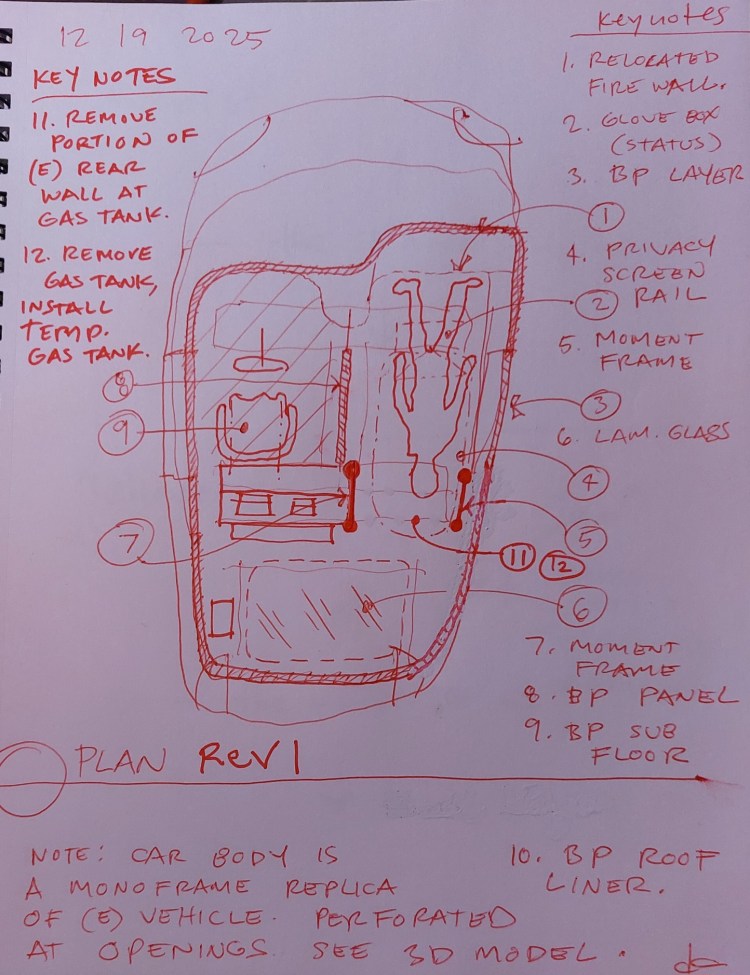 12 19 2025
KEY NOTES
11. REMOVE
PORTION OF
(E) REAR
WALL AT
GAS TANK.
12. REMOVE
GAS TANK,
INSTALL
TEMP.
GAS TANK.
Keynotes
1. RELOCATED
FIRE WALL.
2. GLOVE BOX
(STATUS)
3. BP LAYER
4. PRIVACY
SCREEN
RAIL
5. MOMENT
FRAME
6. LAM. GLASS
7. MOMENT
FRAME
8. BP PANEL
9. BP SUB
FLOOR
1
2
3
4
5
6
7
8
9
11
12
PLAN Rev 1
NOTE: CAR BODY IS
A MONOFRAME REPLICA
OF (E) VEHICLE. PERFORATED
AT OPENINGS. SEE 3D MODEL.
10. BP ROOF
LINER.